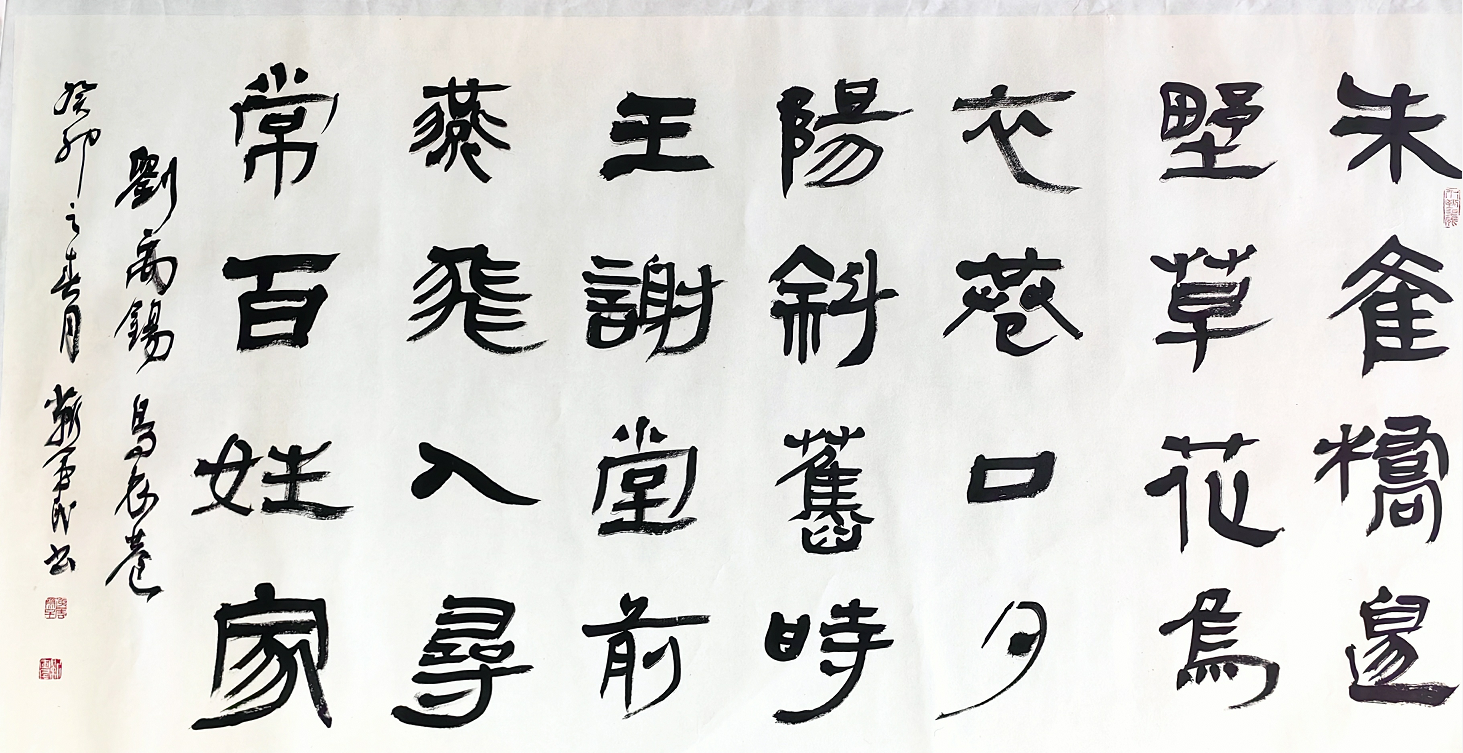 朱雀橋邊
野草花烏
衣巷口夕
陽斜舊時
王謝堂前
燕飛入尋
常百姓家
劉禹錫烏衣巷
癸卯之春月 民书